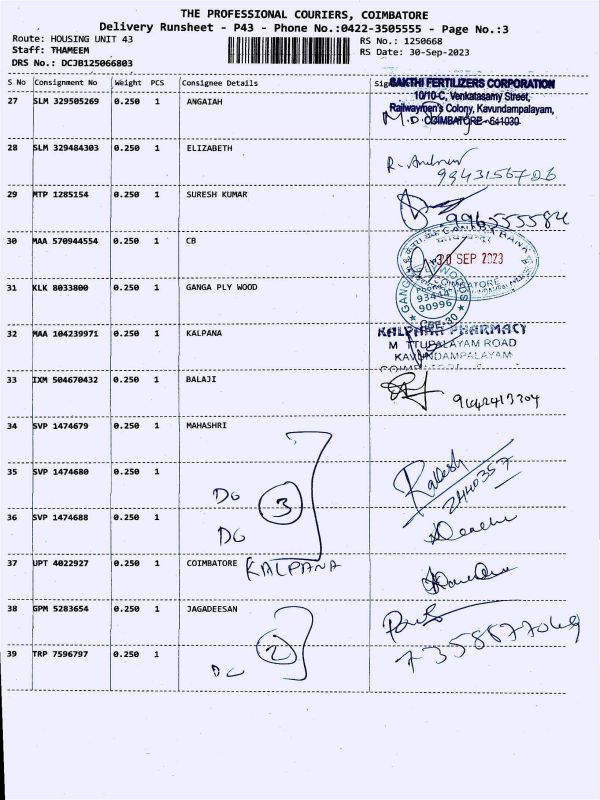 THE PROFESSIONAL COURIERS, COIMBATORE
Delivery Runsheet - P43 - Phone No.:0422-3505555 - Page No.:3
Route: HOUSING UNIT 43
Staff: THAMEEM
DRS No.: DCJB125066803
RS No.: 1250668
RS Date: 30-Sep-2023
S No Consignment No Weight PCS Consignee Details
SAKTHI FERTILIZERS CORPORATION
10/10-C, Venkatasamy Street,
Railwaymen's Colony, Kavundampalayam,
COIMBATORE-641030
27 SLM 329505269 0.250 1 ANGAIAH
28 SLM 329484303 0.250 1 ELIZABETH
29 MTP 1285154 0.250 1 SURESH KUMAR
30 MAA 570944554 0.250 1 CB
CANARA BANK
30 SEP 2023
31 KLK 8033800 0.250 1 GANGA PLY WOOD
90996
CBE-30
32 MAA 104239971 0.250 1 KALPANA
KALPANA PHARMACY
ROAD
KAVUNDAMPALAYAM
33 IXM 504670432 0.250 1 BALAJI
34 SVP 1474679 0.250 1 MAHASHRI
35 SVP 1474680 0.250 1
Rakesh
2440357
DG
3
36 SVP 1474688 0.250 1
DG
37 UPT 4022927 0.250 1 COIMBATORE KALPANA
38 GPM 5283654 0.250 1 JAGADEESAN
2
39 TRP 7596797 0.250 1